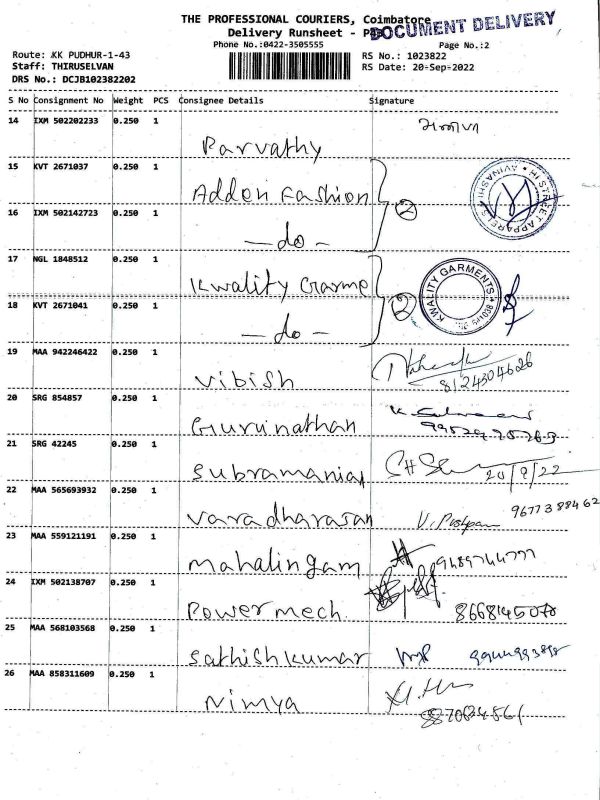 THE PROFESSIONAL COURIERS, Coimbatore
DOCUMENT DELIVERY
Delivery Runsheet -
Phone No.:0422-3505555
Page No.:2
Route: KK PUDHUR-1-43
RS No.: 1023822
Staff: THIRUSELVAN
RS Date: 20-Sep-2022
DRS No.: DCJB102382202
S No Consignment No Weight PCS Consignee Details Signature
14 IXM 502202233 0.250 1
Parvathy
15 KVT 2671037 0.250 1
Addon Fashion
HI STREET APPARELS AVINASHI
16 IXM 502142723 0.250 1
2
- do -
17 NGL 1848512 0.250 1
Kwality Garme
KWALITY GARMENTS
18 KVT 2671041 0.250 1
2
- do -
19 MAA 942246422 0.250 1
Vibish
8124304626
20 SRG 854857 0.250 1
Gurunathan
21 SRG 42245 0.250 1
Subramanian
20/9/22
22 MAA 565693932 0.250 1
Varadharasan
9677388462
23 MAA 559121191 0.250 1
Mahalingam
9489744777
24 IXM 502138707 0.250 1
Powermech.
25 MAA 568103568 0.250 1
Sathishkumar
26 MAA 858311609 0.250 1
Nimya